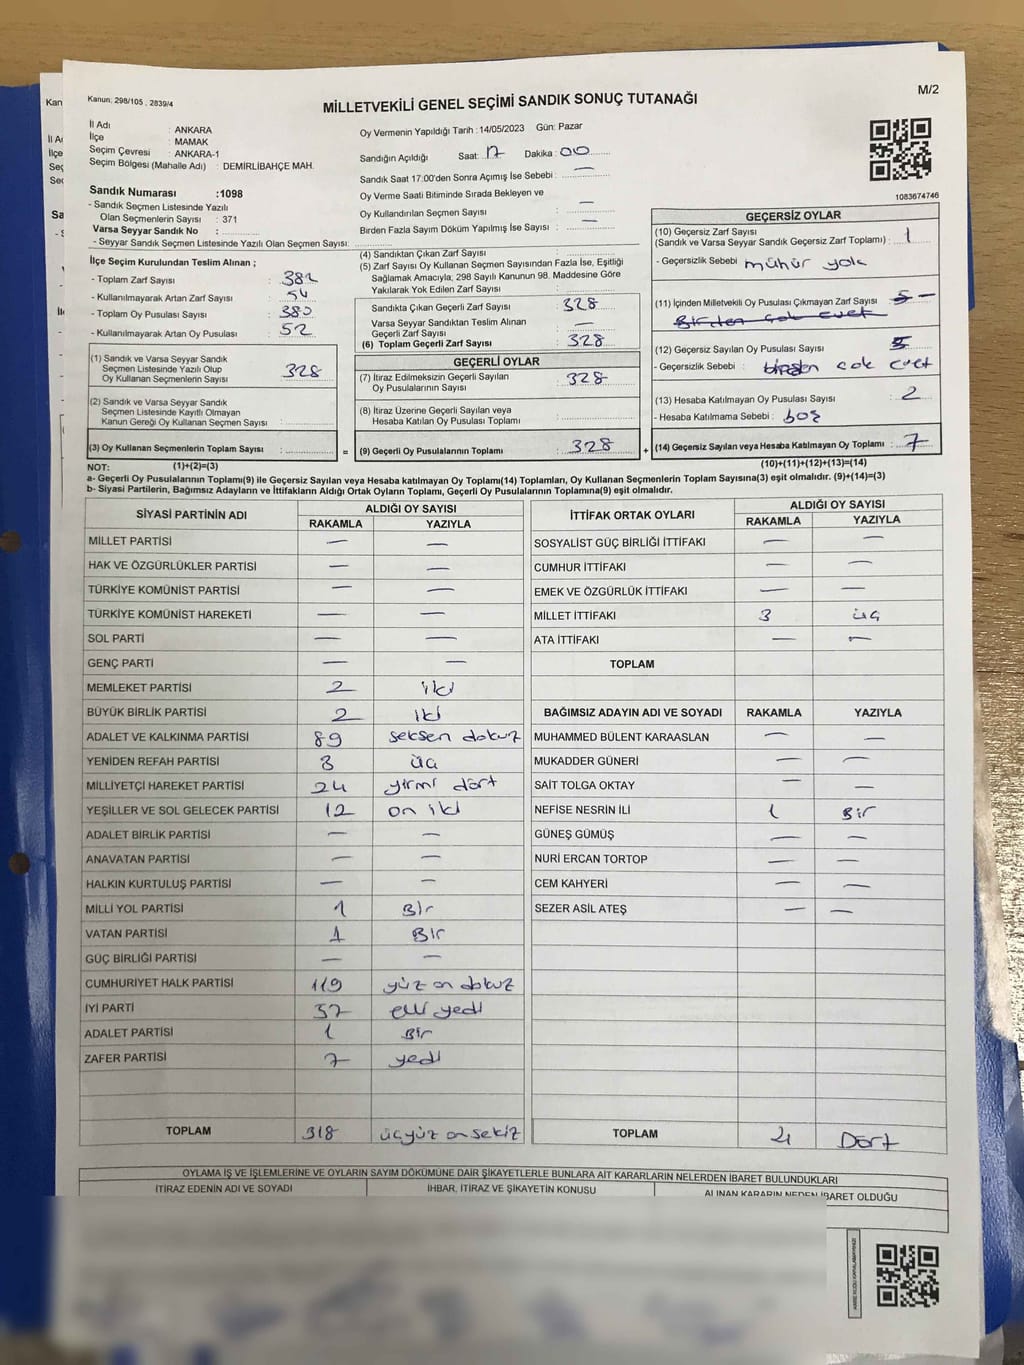 Kanun: 298/105 , 2839/4
MİLLETVEKİLİ GENEL SEÇİMİ SANDIK SONUÇ TUTANAĞI
M/2
İl Adı : ANKARA
İlçe : MAMAK
Seçim Çevresi : ANKARA-1
Seçim Bölgesi (Mahalle Adı) : DEMİRLİBAHÇE MAH.
Sandık Numarası :1098
- Sandık Seçmen Listesinde Yazılı
Olan Seçmenlerin Sayısı : 371
Varsa Seyyar Sandık No :
- Seyyar Sandık Seçmen Listesinde Yazılı Olan Seçmen Sayısı:
Oy Vermenin Yapıldığı Tarih : 14/05/2023 Gün: Pazar
Sandığın Açıldığı Saat: 17 Dakika : 00
Sandık Saat 17:00'den Sonra Açımış İse Sebebi : —
Oy Verme Saati Bitiminde Sırada Bekleyen ve
Oy Kullandırılan Seçmen Sayısı : —
Birden Fazla Sayım Döküm Yapılmış İse Sayısı : —
1083674746
İlçe Seçim Kurulundan Teslim Alınan ;
- Toplam Zarf Sayısı : 382
- Kullanılmayarak Artan Zarf Sayısı : 54
- Toplam Oy Pusulası Sayısı : 380
- Kullanılmayarak Artan Oy Pusulası : 52
(1) Sandık ve Varsa Seyyar Sandık
Seçmen Listesinde Yazılı Olup
Oy Kullanan Seçmenlerin Sayısı : 328
(2) Sandık ve Varsa Seyyar Sandık
Seçmen Listesinde Kayıtlı Olmayan
Kanun Gereği Oy Kullanan Seçmen Sayısı :
(3) Oy Kullanan Seçmenlerin Toplam Sayısı :
(1)+(2)=(3)
(4) Sandıktan Çıkan Zarf Sayısı :
(5) Zarf Sayısı Oy Kullanan Seçmen Sayısından Fazla İse, Eşitliği
Sağlamak Amacıyla; 298 Sayılı Kanunun 98. Maddesine Göre
Yakılarak Yok Edilen Zarf Sayısı :
Sandıkta Çıkan Geçerli Zarf Sayısı : 328
Varsa Seyyar Sandıktan Teslim Alınan
Geçerli Zarf Sayısı : —
(6) Toplam Geçerli Zarf Sayısı : 328
GEÇERLİ OYLAR
(7) İtiraz Edilmeksizin Geçerli Sayılan
Oy Pusulalarının Sayısı : 328
(8) İtiraz Üzerine Geçerli Sayılan veya
Hesaba Katılan Oy Pusulası Toplamı :
= (9) Geçerli Oy Pusulalarının Toplamı : 328 +
GEÇERSİZ OYLAR
(10) Geçersiz Zarf Sayısı
(Sandık ve Varsa Seyyar Sandık Geçersiz Zarf Toplamı) : 1
- Geçersizlik Sebebi : mühür yok
(11) İçinden Milletvekili Oy Pusulası Çıkmayan Zarf Sayısı : 5 —
Birden çok evet
(12) Geçersiz Sayılan Oy Pusulası Sayısı : 5
- Geçersizlik Sebebi : birden çok evet
(13) Hesaba Katılmayan Oy Pusulası Sayısı : 2
- Hesaba Katılmama Sebebi : boş
(14) Geçersiz Sayılan veya Hesaba Katılmayan Oy Toplamı : 7
(10)+(11)+(12)+(13)=(14)
NOT:
a- Geçerli Oy Pusulalarının Toplamı(9) ile Geçersiz Sayılan veya Hesaba katılmayan Oy Toplamı(14) Toplamları, Oy Kullanan Seçmenlerin Toplam Sayısına(3) eşit olmalıdır. (9)+(14)=(3)
b- Siyasi Partilerin, Bağımsız Adayların ve İttifakların Aldığı Ortak Oyların Toplamı, Geçerli Oy Pusulalarının Toplamına(9) eşit olmalıdır.
SİYASİ PARTİNİN ADI ALDIĞI OY SAYISI
RAKAMLA YAZIYLA
MİLLET PARTİSİ — —
HAK VE ÖZGÜRLÜKLER PARTİSİ — —
TÜRKİYE KOMÜNİST PARTİSİ — —
TÜRKİYE KOMÜNİST HAREKETİ — —
SOL PARTİ — —
GENÇ PARTİ — —
MEMLEKET PARTİSİ 2 iki
BÜYÜK BİRLİK PARTİSİ 2 iki
ADALET VE KALKINMA PARTİSİ 89 seksen dokuz
YENİDEN REFAH PARTİSİ 3 üç
MİLLİYETÇİ HAREKET PARTİSİ 24 yirmi dört
YEŞİLLER VE SOL GELECEK PARTİSİ 12 on iki
ADALET BİRLİK PARTİSİ — —
ANAVATAN PARTİSİ — —
HALKIN KURTULUŞ PARTİSİ — —
MİLLİ YOL PARTİSİ 1 Bir
VATAN PARTİSİ 1 Bir
GÜÇ BİRLİĞİ PARTİSİ — —
CUMHURİYET HALK PARTİSİ 119 yüz on dokuz
İYİ PARTİ 57 elli yedi
ADALET PARTİSİ 1 Bir
ZAFER PARTİSİ 7 yedi
TOPLAM 318 üçyüz on sekiz
İTTİFAK ORTAK OYLARI ALDIĞI OY SAYISI
RAKAMLA YAZIYLA
SOSYALİST GÜÇ BİRLİĞİ İTTİFAKI — —
CUMHUR İTTİFAKI — —
EMEK VE ÖZGÜRLÜK İTTİFAKI — —
MİLLET İTTİFAKI 3 üç
ATA İTTİFAKI — —
TOPLAM
BAĞIMSIZ ADAYIN ADI VE SOYADI RAKAMLA YAZIYLA
MUHAMMED BÜLENT KARAASLAN — —
MUKADDER GÜNERİ — —
SAİT TOLGA OKTAY — —
NEFİSE NESRİN İLİ 1 Bir
GÜNEŞ GÜMÜŞ — —
NURİ ERCAN TORTOP — —
CEM KAHYERİ — —
SEZER ASİL ATEŞ — —
TOPLAM 4 Dört
OYLAMA İŞ VE İŞLEMLERİNE VE OYLARIN SAYIM DÖKÜMÜNE DAİR ŞİKAYETLERLE BUNLARA AİT KARARLARIN NELERDEN İBARET BULUNDUKLARI
İTİRAZ EDENİN ADI VE SOYADI İHBAR, İTİRAZ VE ŞİKAYETİN KONUSU ALINAN KARARIN NEDEN İBARET OLDUĞU